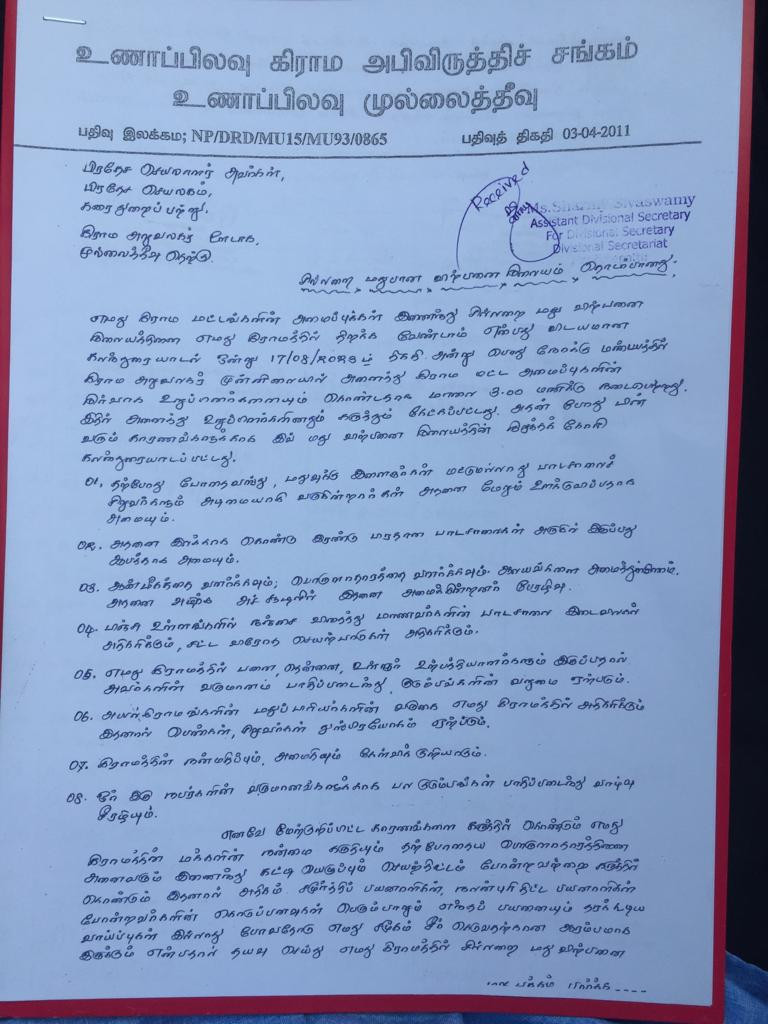 உணாப்பிலவு கிராம அபிவிருத்திச் சங்கம்
உணாப்பிலவு முல்லைத்தீவு
பதிவு இலக்கம்; NP/DRD/MU15/MU93/0865 பதிவுத் திகதி 03-04-2011
பிரதேச செயலாளர் அவர்கள்,
பிரதேச செயலகம்,
கரைதுறைப்பற்று.
Received
Ms.Sharmy Sivaswamy
Assistant Divisional Secretary
For Divisional Secretary
Divisional Secretariat
கிராம அலுவலகர் ஊடாக,
முல்லைத்தீவு தெற்கு.
சில்லறை மதுபான விற்பனை நிலையம் தொடர்பானது.
எமது கிராம மட்டங்களின் அமைப்புக்கள் இணைந்து சில்லறை மது விற்பனை
நிலையத்தினை எமது கிராமத்தில் திறக்க வேண்டாம் என்பது விடயமான
கலந்துரையாடல் ஒன்று 17/08/2023ம் திகதி அன்று பொது நோக்கு மண்டபத்தில்
கிராம அலுவலகர் முன்னிலையில் அனைத்து கிராம மட்ட அமைப்புகளின்
நிர்வாக உறுப்பினர்களையும் கொண்டதாக மாலை 3.00 மணிக்கு நடைபெற்றது.
இதில் அனைத்து உறுப்பினர்களினதும் கருத்தும் கேட்கப்பட்டது. அதன் போது பின்
வரும் காரணங்களுக்காக இம் மது விற்பனை நிலையத்தின் நிறுத்தக் கோரி
கலந்துரையாடப்பட்டது.
01. தற்போது போதைவஸ்து, மதுவுக்கு இளைஞர்கள் மட்டுமல்லாது பாடசாலைச்
சிறுவர்களும் அடிமையாகி வருகின்றார்கள் அதனை மேலும் ஊக்குவிப்பதாக
அமையும்.
02. அதனை இலக்காக கொண்டு இரண்டு பிரதான பாடசாலைகள் அருகில் இருப்பது
ஆபத்தாக அமையும்.
03. ஆன்மீகத்தை வளர்க்கவும்; பொருளாதாரத்தை வளர்க்கவும். ஆலயங்களை அமைத்துள்ளோம்.
அதனை அழிக்க அச் சூழலில் இதனை அமைக்கின்றனர் பேரழிவு.
04. பிஞ்சு உள்ளங்களில் நஞ்சை விதைத்து மாணவர்களின் பாடசாலை இடைவிலகல்
அதிகரிக்கும், சட்ட விரோத செயற்பாடுகள் அதிகரிக்கும்.
05. எமது கிராமத்தில் பனை, தென்னை, உள்ளூர் உற்பத்தியாளர்களும் இருப்பதால்
அவர்களின் வருமானம் பாதிப்படைந்து, குடும்பங்களின் வறுமை ஏற்படும்.
06. அயற்கிராமங்களின் மதுப்பிரியர்களின் வருகை எமது கிராமத்தில் அதிகரிக்கும்
இதனால் பெண்கள், சிறுவர்கள் துஸ்பிரயோகம் ஏற்படும்.
07. கிராமத்தின் நன்மதிப்பும், அமைதியும் கேள்விக்குறியாகும்.
08. ஓர் இரு நபர்களின் வருமானங்களுக்காக பல குடும்பங்கள் பாதிப்படைந்து வாழ்வு
சீரழியும்.
எனவே மேற்குறிப்பிட்ட காரணங்களை கருத்தில் கொண்டும் எமது
கிராமத்தின் மக்களின் நன்மை கருதியும் தற்போதைய பொருளாதாரத்தினை
அனைவரும் இணைந்து கட்டி யெழுப்பும் செயற்திட்டம் போன்றவற்றை கருத்தில்
கொண்டும் இதனால் அதிகம் சமூர்த்திப் பயனாளிகள், நலன்புரி திட்ட பயனாளிகள்
போன்றவர்களின் கொடுப்பனவுகள் பெரும்பாலும் எந்தப் பயனையும் தரக்கூடிய
வாய்ப்புகள் இல்லாது போவதோடு எமது சமூகம் சீர் கெடுவதற்கான ஆரம்பமாக
இருக்கும் என்பதால் தயவு செய்து எமது கிராமத்தில் சில்லறை மது விற்பனை
பக்கம் பார்க்க ----